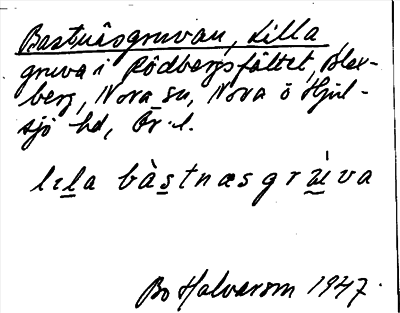 Bastnäsgruvan, Lilla
gruva i Rödbergsfältet, Blex-
berg, Nora sn, Nora o Hjul-
sjö hd, Ör. l.
bàstnæsgr va
Bo Halvarson 1947.